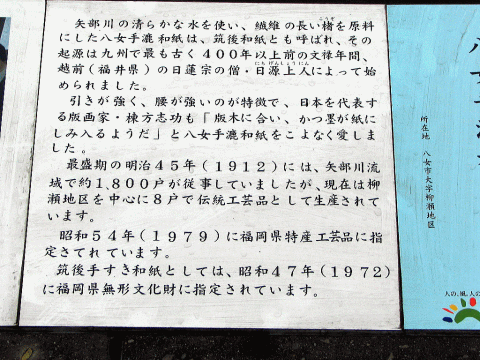 矢部川の清らかな水を使い、繊維の長い楮を原料
にした八女手漉和紙は、筑後和紙とも呼ばれ、その
起源は九州で最も古く４００年以上前の文禄年間、
越前（福井県）の日蓮宗の僧・日源上人によって始
められました。
引きが強く、腰が強いのが特徴で、日本を代表す
る版画家・棟方志功も「版木に合い、かつ墨が紙に
しみ入るようだ」と八女手漉和紙をこよなく愛しま
した。
最盛期の明治４５年（１９１２）には、矢部川流
域で約１,８００戸が従事していましたが、現在は柳
瀬地区を中心に８戸で伝統工芸品として生産されて
います。
昭和５４年（１９７９）に福岡県特産工芸品に指
定さてれています。
筑後手すき和紙としては、昭和４７年（１９７２）
に福岡県無形文化財に指定されています。
所在地　八女市大字柳瀬地区